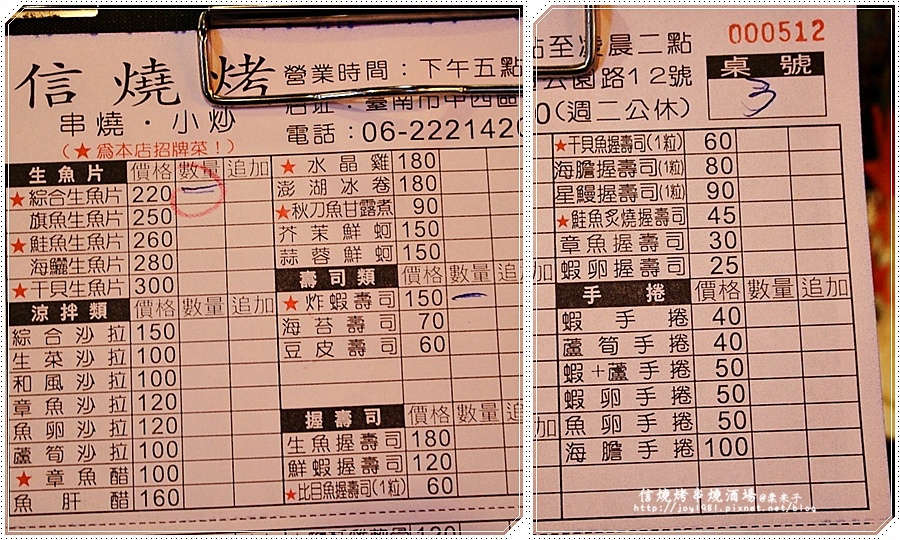 信燒烤
串燒・小炒
(★為本店招牌菜！)
營業時間：下午五點
店址：臺南市中西區
電話：06-2221420
生魚片 價格 數量 追加
★綜合生魚片 220 一
旗魚生魚片 250
★鮭魚生魚片 260
海鱺生魚片 280
★干貝生魚片 300
涼拌類 價格 數量 追加
綜合沙拉 150
生菜沙拉 100
和風沙拉 100
章魚沙拉 120
魚卵沙拉 120
蘆筍沙拉 100
★章魚醋 100
魚肝醋 160
★水晶雞 180
澎湖冰卷 180
★秋刀魚甘露煮 90
芥茉鮮蚵 150
蒜蓉鮮蚵 150
壽司類 價格 數量 追加
★炸蝦壽司 150 一
海苔壽司 70
豆皮壽司 60
握壽司 價格 數量 追
生魚握壽司 180
鮮蝦握壽司 120
★比目魚握壽司(1粒) 60
120
點至凌晨二點
公園路12號
0(週二公休)
000512
桌號
3
★干貝魚握壽司(1粒) 60
海膽握壽司(1粒) 80
星鰻握壽司(1粒) 90
★鮭魚炙燒握壽司 45
章魚握壽司 30
蝦卵握壽司 25
加 手捲 價格 數量 追加
蝦手捲 40
蘆筍手捲 40
蝦+蘆手捲 50
蝦卵手捲 50
加 魚卵手捲 50
海膽手捲 100
信燒烤串燒酒場@柔未子
http://joy1981.pixnet.net/blog